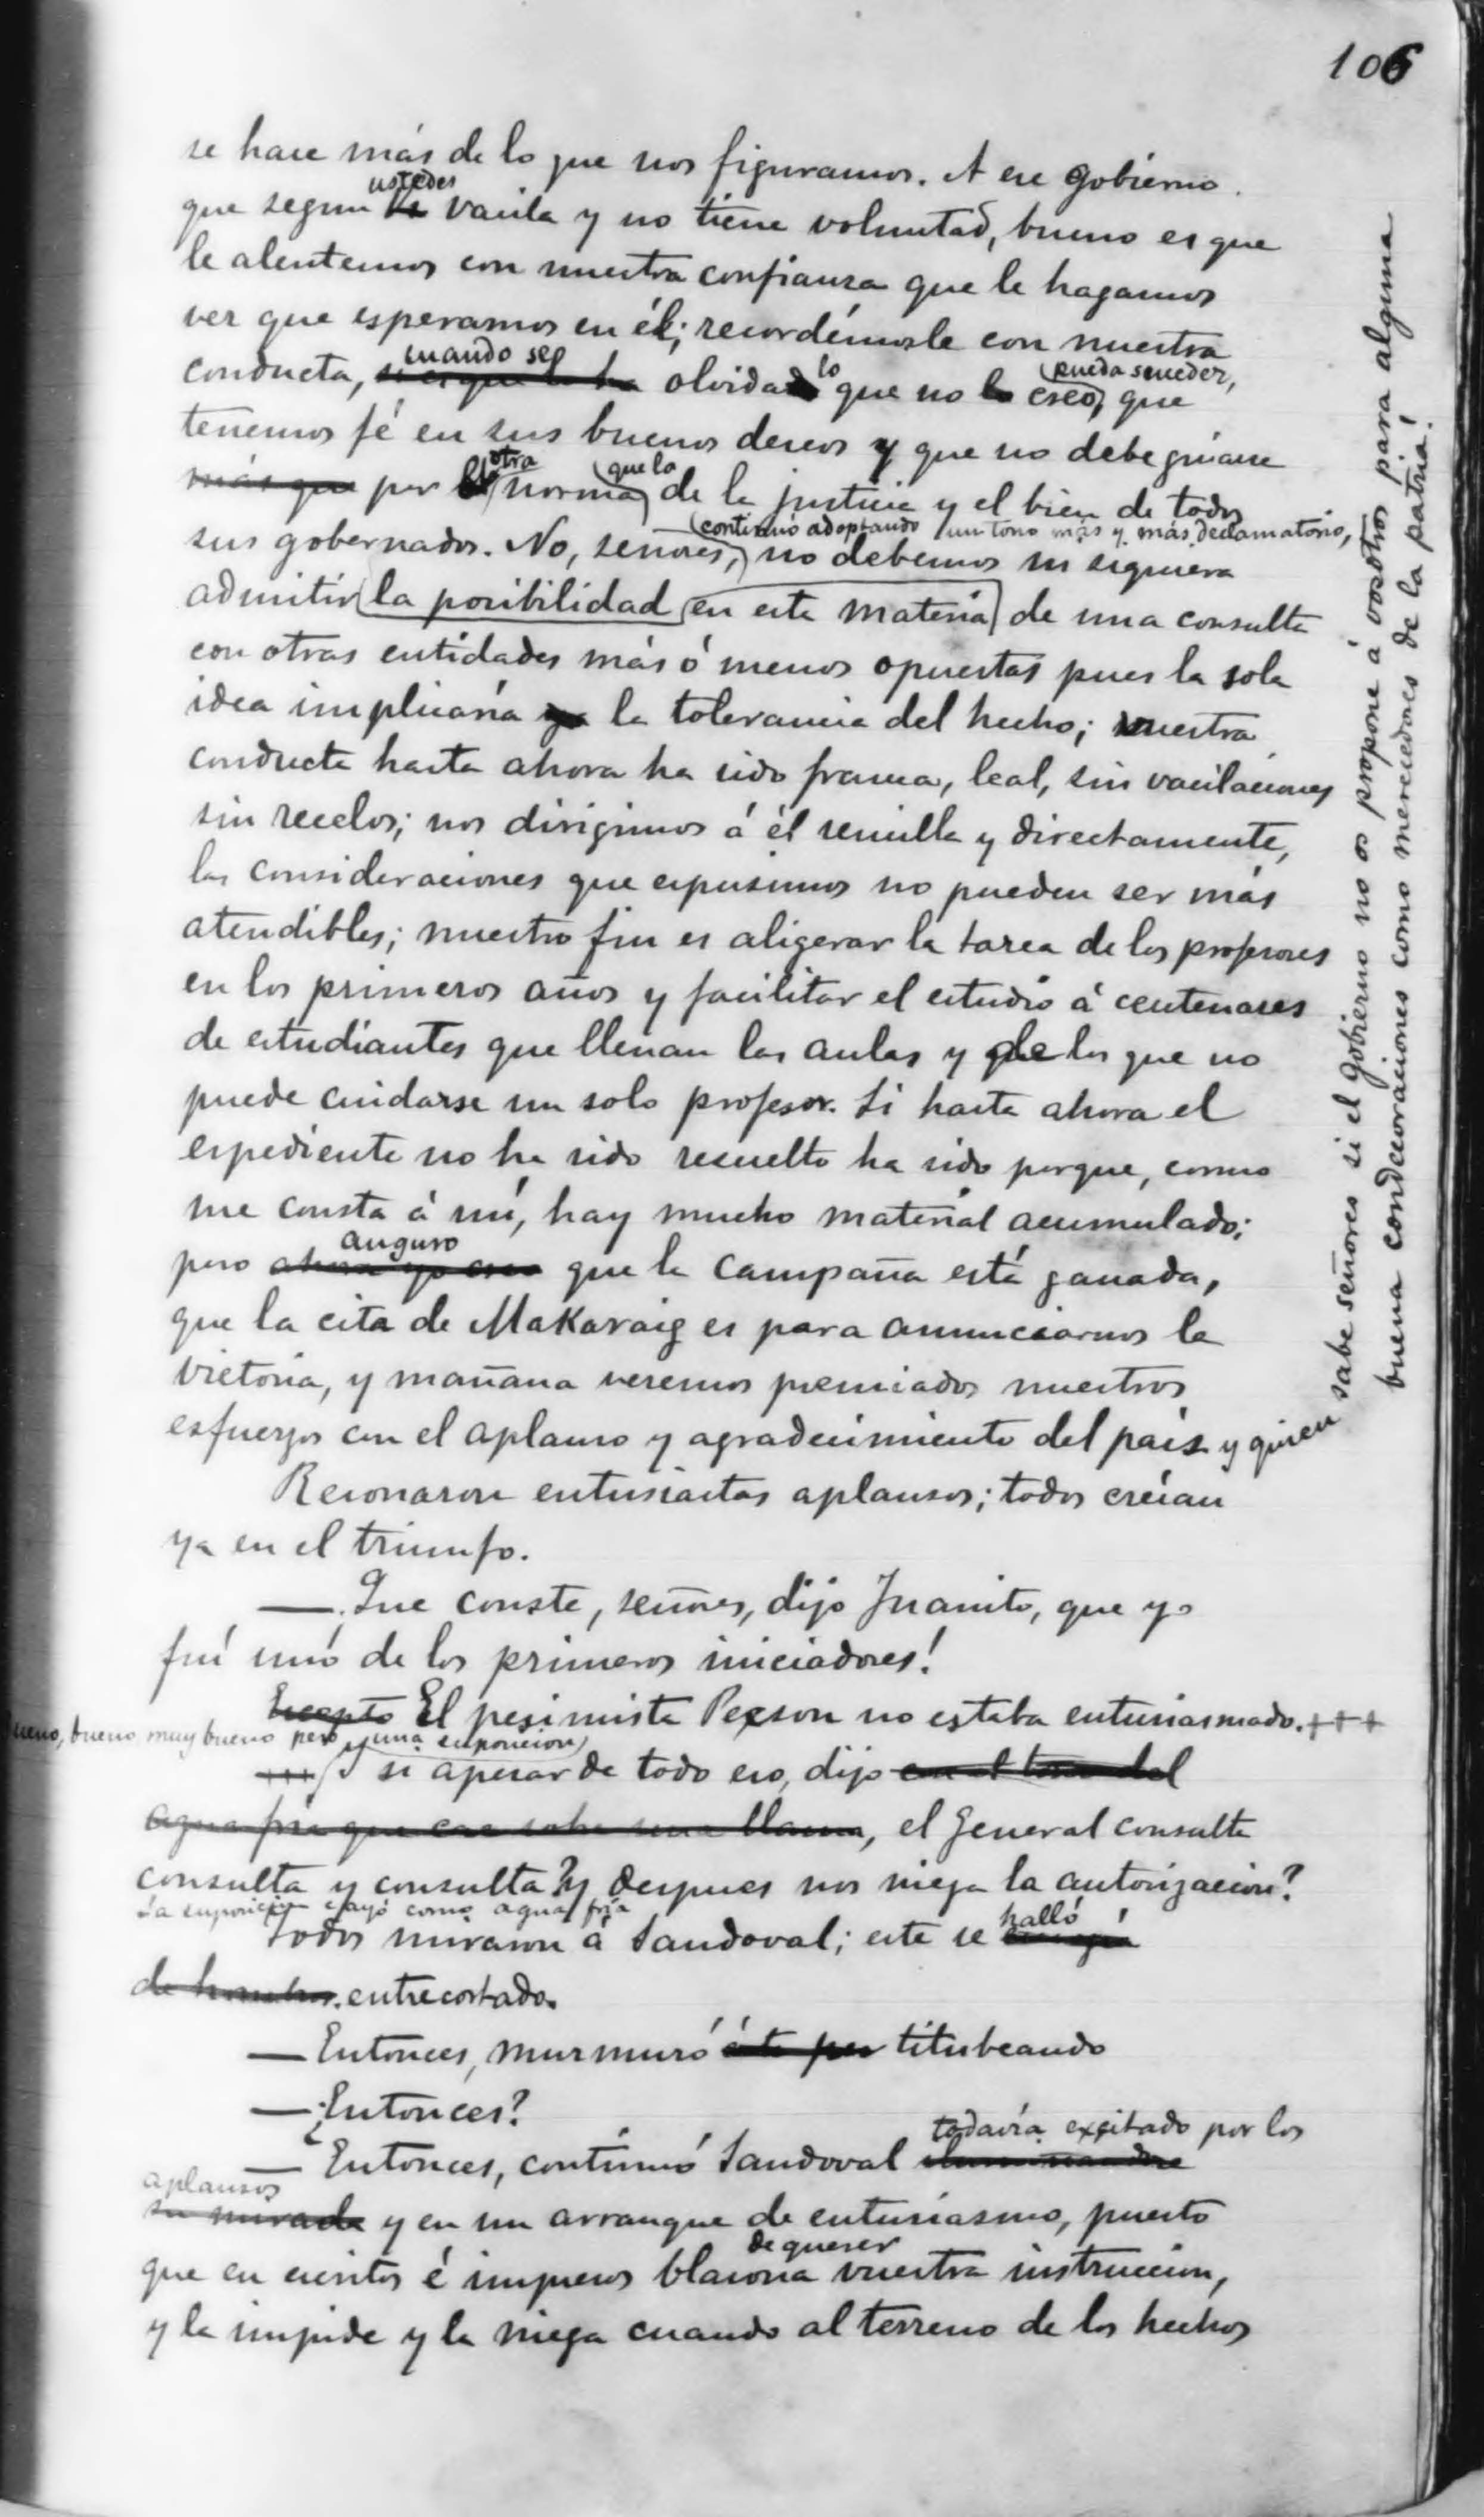 106
se hace más de lo que nos figuramos. A ese gobierno
ustedes
que segun vacila y no tiene voluntad, bueno es que
le alentemos con nuestra confianza que le hagamos
ver que esperamos en él; recordémosle con nuestra
cuando se lo pueda suceder,
conducta, olvida que no lo creo, que
tenemos fé en sus buenos deseos y que no debe guiarse
otra que la
más que por norma de la justicia y el bien de todos
continuó adoptando un tono más y más declamatorio,
sus gobernados. No, señores, no debemos ni siquiera
admitir la posibilidad en esta materia de una consulta
con otras entidades más ó menos opuestas pues la sola
idea implicaría ya la tolerancia del hecho; vuestra
conducta hasta ahora ha sido franca, leal, sin vacilaciones
sin recelos; nos dirigimos á él sencilla y directamente,
las consideraciones que espusimos no pueden ser más
atendibles; nuestro fin es aligerar la tarea de los profesores
en los primeros años y facilitar el estudio á centenares
de estudiantes que llenan las aulas y de los que no
puede cuidarse un solo profesor. Si hasta ahora el
espediente no ha sido resuelto ha sido porque, como
me consta á mí, hay mucho material acumulado;
auguro
pero ahora yo creo que la campaña está ganada,
que la cita de Makaraig es para anunciarnos la
victoria, y mañana veremos premiados nuestros
esfuerzos con el aplauso y agradecimiento del país y quien
sabe señores si el gobierno no os propone á vosotros para alguna
buena condecoraciones como merecedores de la patria!
Resonaron entusiastas aplausos; todos creían
ya en el triunfo.
— Que conste, señores, dijo Juanito, que yo
fuí uno de los primeros iniciadores!
Excepto El pesimista Pecson no estaba entusiasmado. +++
bueno, bueno muy bueno pero y una suposicion
+++ si apesar de todo eso, dijo en el tono del
agua fría que cae sobre una llama, el General consulta
consulta y consulta? y despues nos niega la autorizacion?
La suposicion cayó como agua fría
halló
Todos miraron á Sandoval; este se
de hombros. entrecortado.
— Entonces, murmuró titubeando
— ¿Entonces?
todavía excitado por los
— Entonces, continuó Sandoval
aplausos
su mirada y en un arranque de entusiasmo, puesto
de querer
que en escritos é impresos blasona vuestra instruccion,
y la impide y la niega cuando al terreno de los hechos